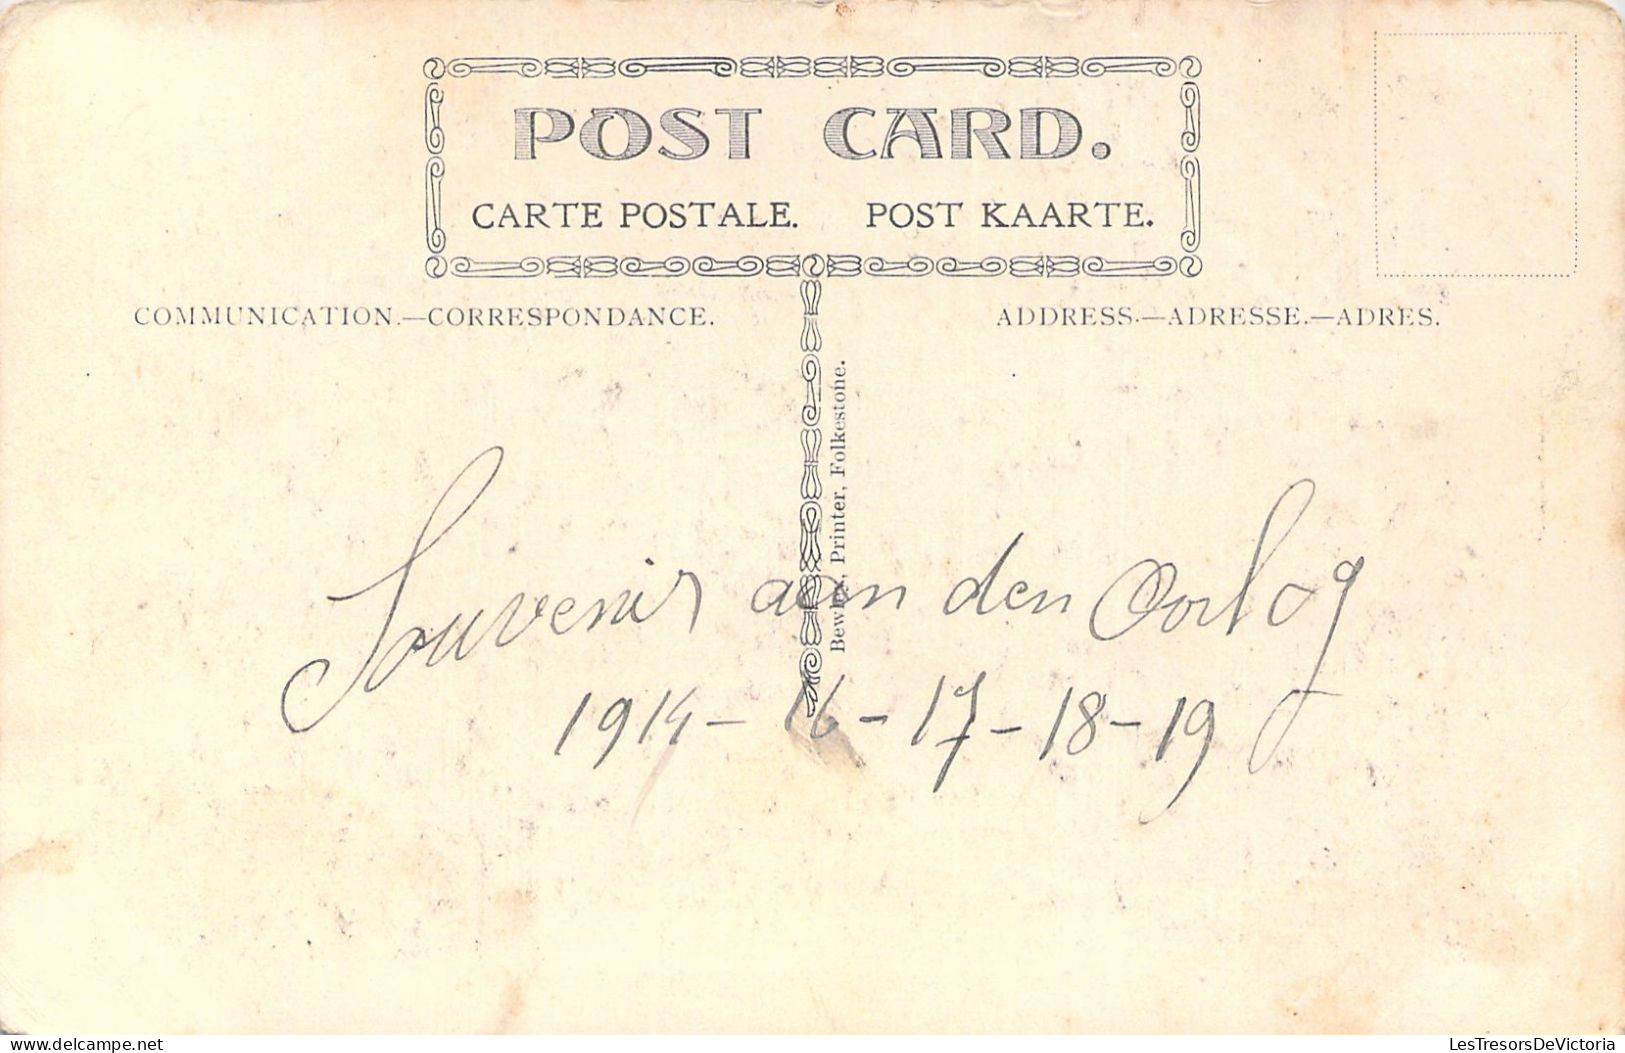 POST CARD.
CARTE POSTALE. POST KAARTE.
COMMUNICATION.—CORRESPONDANCE.
ADDRESS.—ADRESSE.—ADRES.
Printer, Folkestone.
Souvenir aan den Oorlog
1914 - 16 - 17 - 18 - 19
delcampe.net
LesTresorsDeVictoria